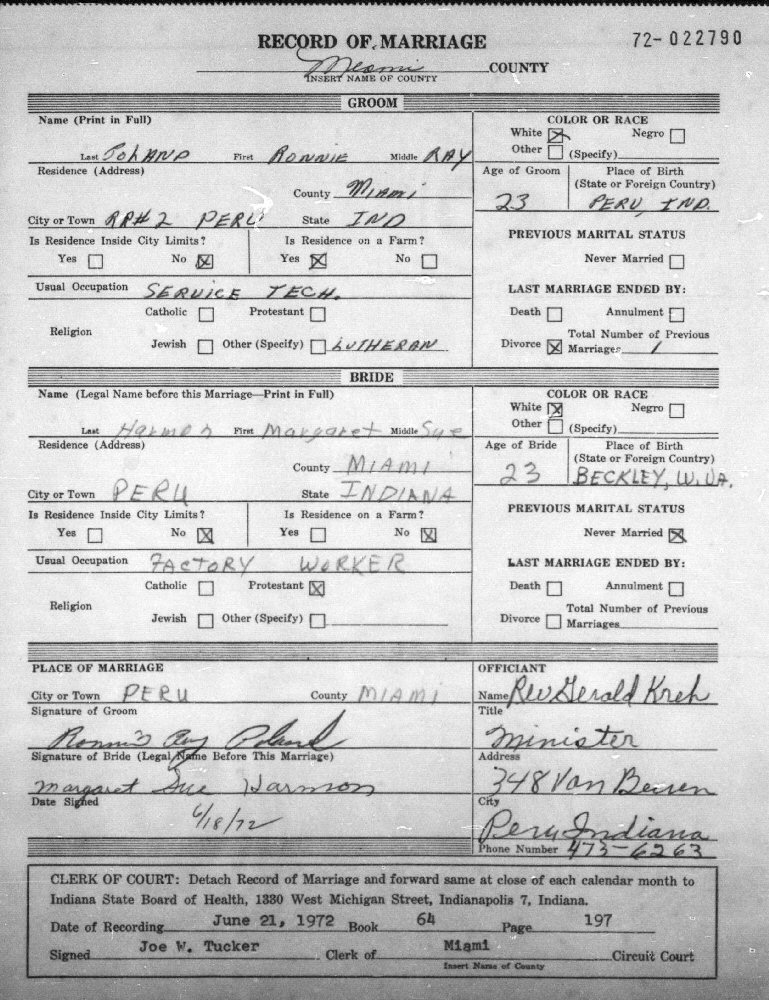 RECORD OF MARRIAGE
72-022790
Miami COUNTY
INSERT NAME OF COUNTY
GROOM
Name (Print in Full)
Last POLAND First RONNIE Middle RAY
COLOR OR RACE
White ☒ Negro ☐
Other ☐ (Specify)
Residence (Address)
County MIAMI
City or Town RR# 2 PERU State IND
Age of Groom 23
Place of Birth
(State or Foreign Country)
PERU, IND.
Is Residence Inside City Limits?
Yes ☐ No ☒
Is Residence on a Farm?
Yes ☒ No ☐
PREVIOUS MARITAL STATUS
Never Married ☐
Usual Occupation SERVICE TECH.
LAST MARRIAGE ENDED BY:
Death ☐ Annulment ☐
Divorce ☒ Total Number of Previous
Marriages 1
Religion
Catholic ☐ Protestant ☐
Jewish ☐ Other (Specify) ☐ LUTHERAN
BRIDE
Name (Legal Name before this Marriage—Print in Full)
Last Harmon First Margaret Middle Sue
COLOR OR RACE
White ☒ Negro ☐
Other ☐ (Specify)
Residence (Address)
County MIAMI
City or Town PERU State INDIANA
Age of Bride 23
Place of Birth
(State or Foreign Country)
BECKLEY, W. VA.
Is Residence Inside City Limits?
Yes ☐ No ☒
Is Residence on a Farm?
Yes ☐ No ☒
PREVIOUS MARITAL STATUS
Never Married ☒
Usual Occupation FACTORY WORKER
LAST MARRIAGE ENDED BY:
Death ☐ Annulment ☐
Divorce ☐ Total Number of Previous
Marriages
Religion
Catholic ☐ Protestant ☒
Jewish ☐ Other (Specify) ☐
PLACE OF MARRIAGE
City or Town PERU County MIAMI
Signature of Groom
Ronnie Ray Poland
Signature of Bride (Legal Name Before This Marriage)
Margaret Sue Harmon
Date Signed
6/18/72
OFFICIANT
Name Rev Gerald Kreh
Title
Minister
Address
348 Van Buren
City
Peru Indiana
Phone Number 473-6263
CLERK OF COURT: Detach Record of Marriage and forward same at close of each calendar month to
Indiana State Board of Health, 1330 West Michigan Street, Indianapolis 7, Indiana.
Date of Recording June 21, 1972 Book 64 Page 197
Signed Joe W. Tucker Clerk of Miami Circuit Court
Insert Name of County